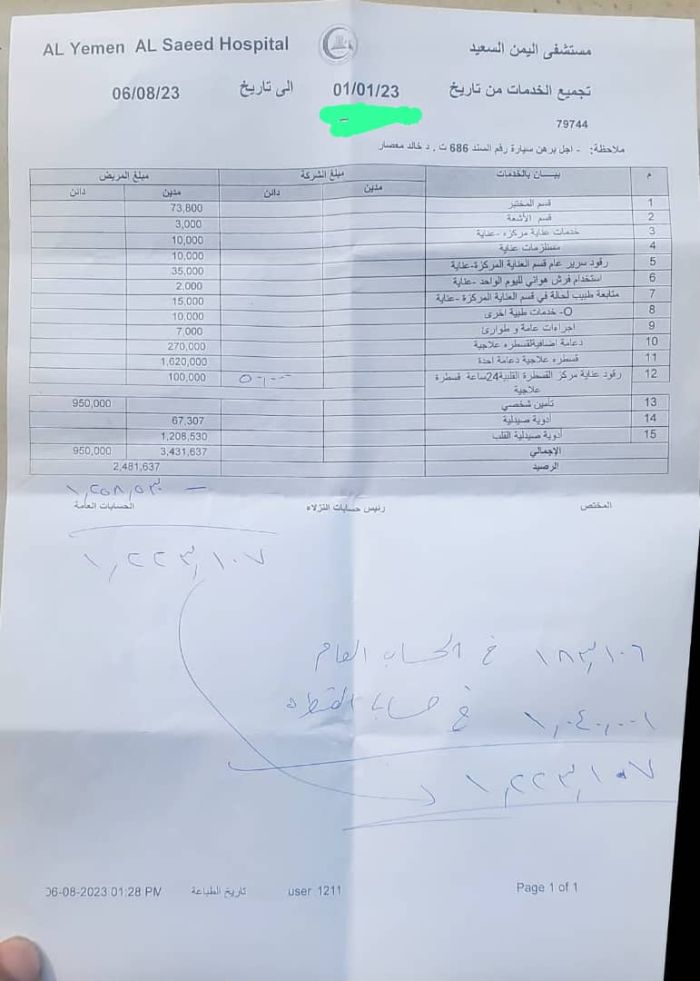 AL Yemen AL Saeed Hospital مستشفى اليمن السعيد
تجميع الخدمات من تاريخ 01/01/23 الى تاريخ 06/08/23
79744
ملاحظة: - اجل برهن سيارة رقم السند 686 ت . د خالد معصار
م بيـــان بالخدمات مبلغ الشركة مبلغ المريض
مدين دائن مدين دائن
1 قسم المختبر 73,800
2 قسم الأشعة 3,000
3 خدمات عناية مركزه -عناية 10,000
4 مستلزمات عناية 10,000
5 رقود سرير عام قسم العناية المركزة-عناية 35,000
6 استخدام فرش هوائي لليوم الواحد -عناية 2,000
7 متابعة طبيب لحالة في قسم العناية المركزة -عناية 15,000
8 O- خدمات طبية اخرى 10,000
9 اجراءات عامة و طوارئ 7,000
10 دعامة اضافيةقسطره علاجية 270,000
11 قسطره علاجية دعامة احدة 1,620,000
12 رقود عناية مركز القسطرة القلبية24ساعة قسطرة علاجية 100,000
13 تأمين شخصي 950,000
14 أدوية صيدلية 67,307
15 أدوية صيدلية القلب 1,208,530
الإجمالي 3,431,637 950,000
الرصيد 2,481,637
١,٢٥٨,٥٣٠ -
المختص رئيس حسابات النزلاء الحسابات العامة
١,٢٢٣,١٠٧
١٨٣,١٠٦ خ الحساب العام
١,٠٤٠,٠٠١ خ حساب القسطره
١,٢٢٣,١٠٧
Page 1 of 1 user 1211 تاريخ الطباعة 06-08-2023 01:28 PM